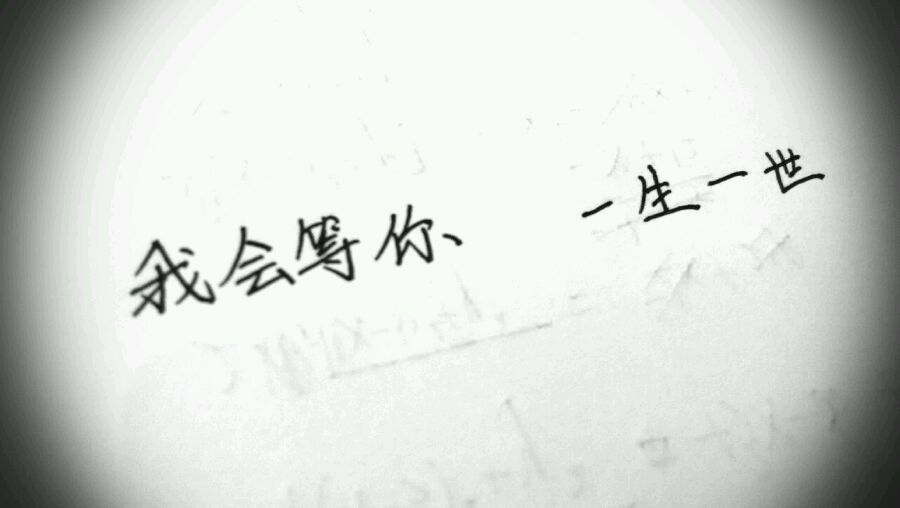 我会等你、 一生一世